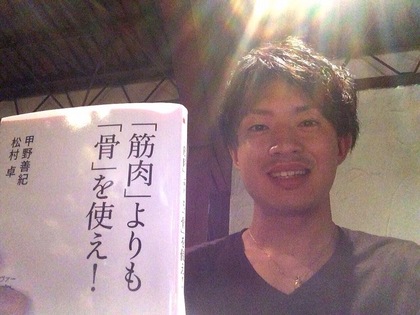 「筋肉」よりも
「骨」を使え！
甲野善紀
松村 卓